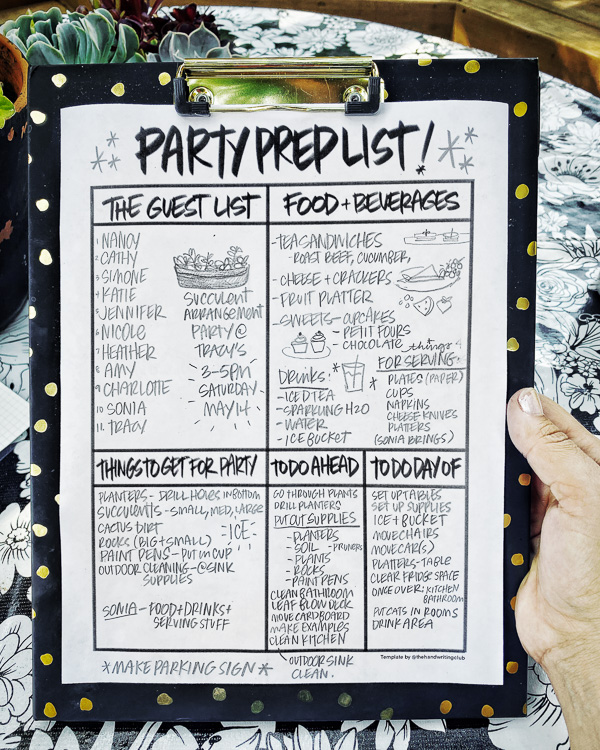 PARTY PREP LIST!
THE GUEST LIST
1 NANCY
2 CATHY
3 SIMONE
4 KATIE
5 JENNIFER
6 NICOLE
7 HEATHER
8 AMY
9 CHARLOTTE
10 SONIA
11. TRACY
SUCCULENT
ARRANGEMENT
PARTY @
TRACY'S
3-5PM
SATURDAY
MAY 14
FOOD + BEVERAGES
-TEA SANDWICHES
-ROAST BEEF, CUCUMBER,
-CHEESE + CRACKERS
-FRUIT PLATTER
-SWEETS- CUPCAKES
- PETIT FOURS
- CHOCOLATE
DRINKS:
-ICED TEA
-SPARKLING H2O
-WATER
-ICE BUCKET
things
FOR SERVING:
PLATES (PAPER)
CUPS
NAPKINS
CHEESE KNIVES
PLATTERS
(SONIA BRINGS)
THINGS TO GET FOR PARTY
PLANTERS- DRILL HOLES IN BOTTOM
SUCCULENTS -SMALL, MED, LARGE
CACTUS DIRT
ROCKS (BIG + SMALL)
PAINT PENS- PUT IN CUP
OUTDOOR CLEANING-@SINK
SUPPLIES
-ICE-
SONIA- FOOD + DRINKS +
SERVING STUFF
TO DO AHEAD
GO THROUGH PLANTS
DRILL PLANTERS
PUT OUT SUPPLIES
- PLANTERS
- SOIL - PRUNERS
- PLANTS
- ROCKS
- PAINT PENS
CLEAN BATHROOM
LEAF BLOW DECK
MOVE CARDBOARD
MAKE EXAMPLES
CLEAN KITCHEN
OUTDOOR SINK
CLEAN.
TO DO DAY OF
SET UP TABLES
SET UP SUPPLIES
ICE + BUCKET
MOVE CHAIRS
MOVE CAR(S)
PLATTERS-TABLE
CLEAR FRIDGE SPACE
ONCE OVER: KITCHEN
BATHROOM
PUT CATS IN ROOMS
DRINK AREA
*MAKE PARKING SIGN*
Template by @thehandwritingclub